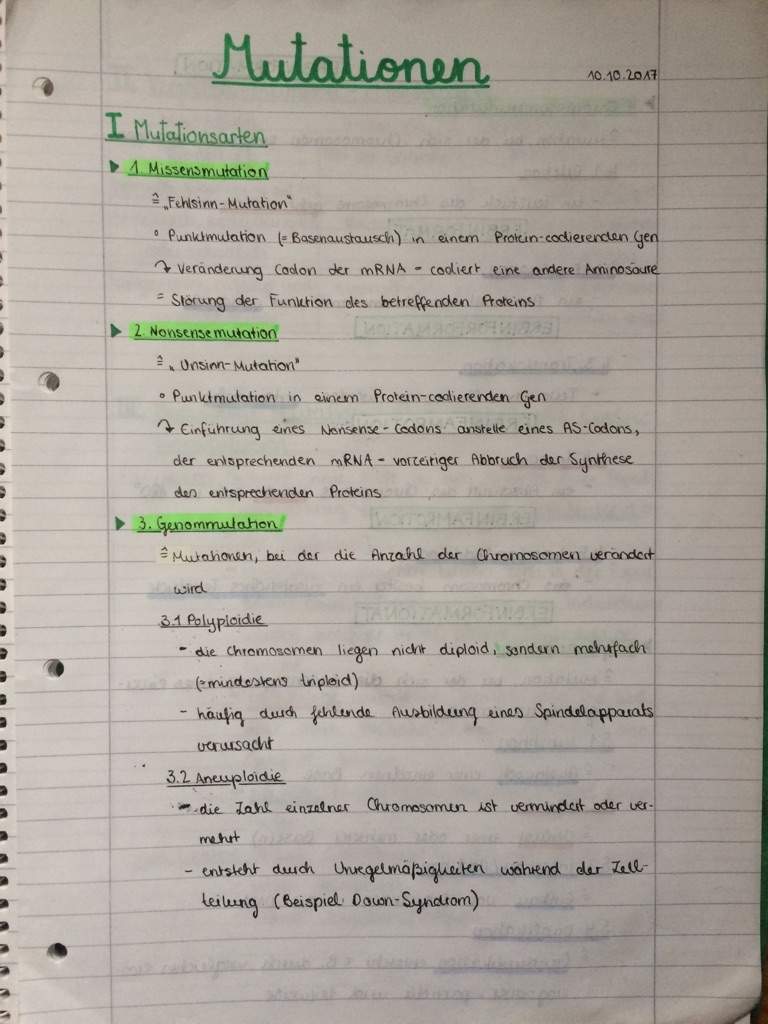 Mutationen
10.10.2017
I Mutationsarten
▶ 1. Missensmutation
≙ „Fehlsinn-Mutation“
° Punktmutation (= Basenaustausch) in einem Protein-codierenden Gen
↴ Veränderung Codon der mRNA - codiert eine andere Aminosäure
= Störung der Funktion des betreffenden Proteins
▶ 2. Nonsensemutation
≙ „Unsinn-Mutation“
° Punktmutation in einem Protein-codierenden Gen
↴ Einführung eines Nonsense-Codons anstelle eines AS-Codons,
der entsprechenden mRNA - vorzeitiger Abbruch der Synthese
des entsprechenden Proteins
▶ 3. Genommutation
≙ Mutationen, bei der die Anzahl der Chromosomen verändert
wird
3.1 Polyploidie
- die Chromosomen liegen nicht diploid, sondern mehrfach
(=mindestens triploid)
- häufig durch fehlende Ausbildung eines Spindelapparats
verursacht
3.2 Aneuploidie
- die Zahl einzelner Chromosomen ist vermindert oder ver-
mehrt
- entsteht durch Unregelmäßigkeiten während der Zell-
teilung (Beispiel: Down-Syndrom)